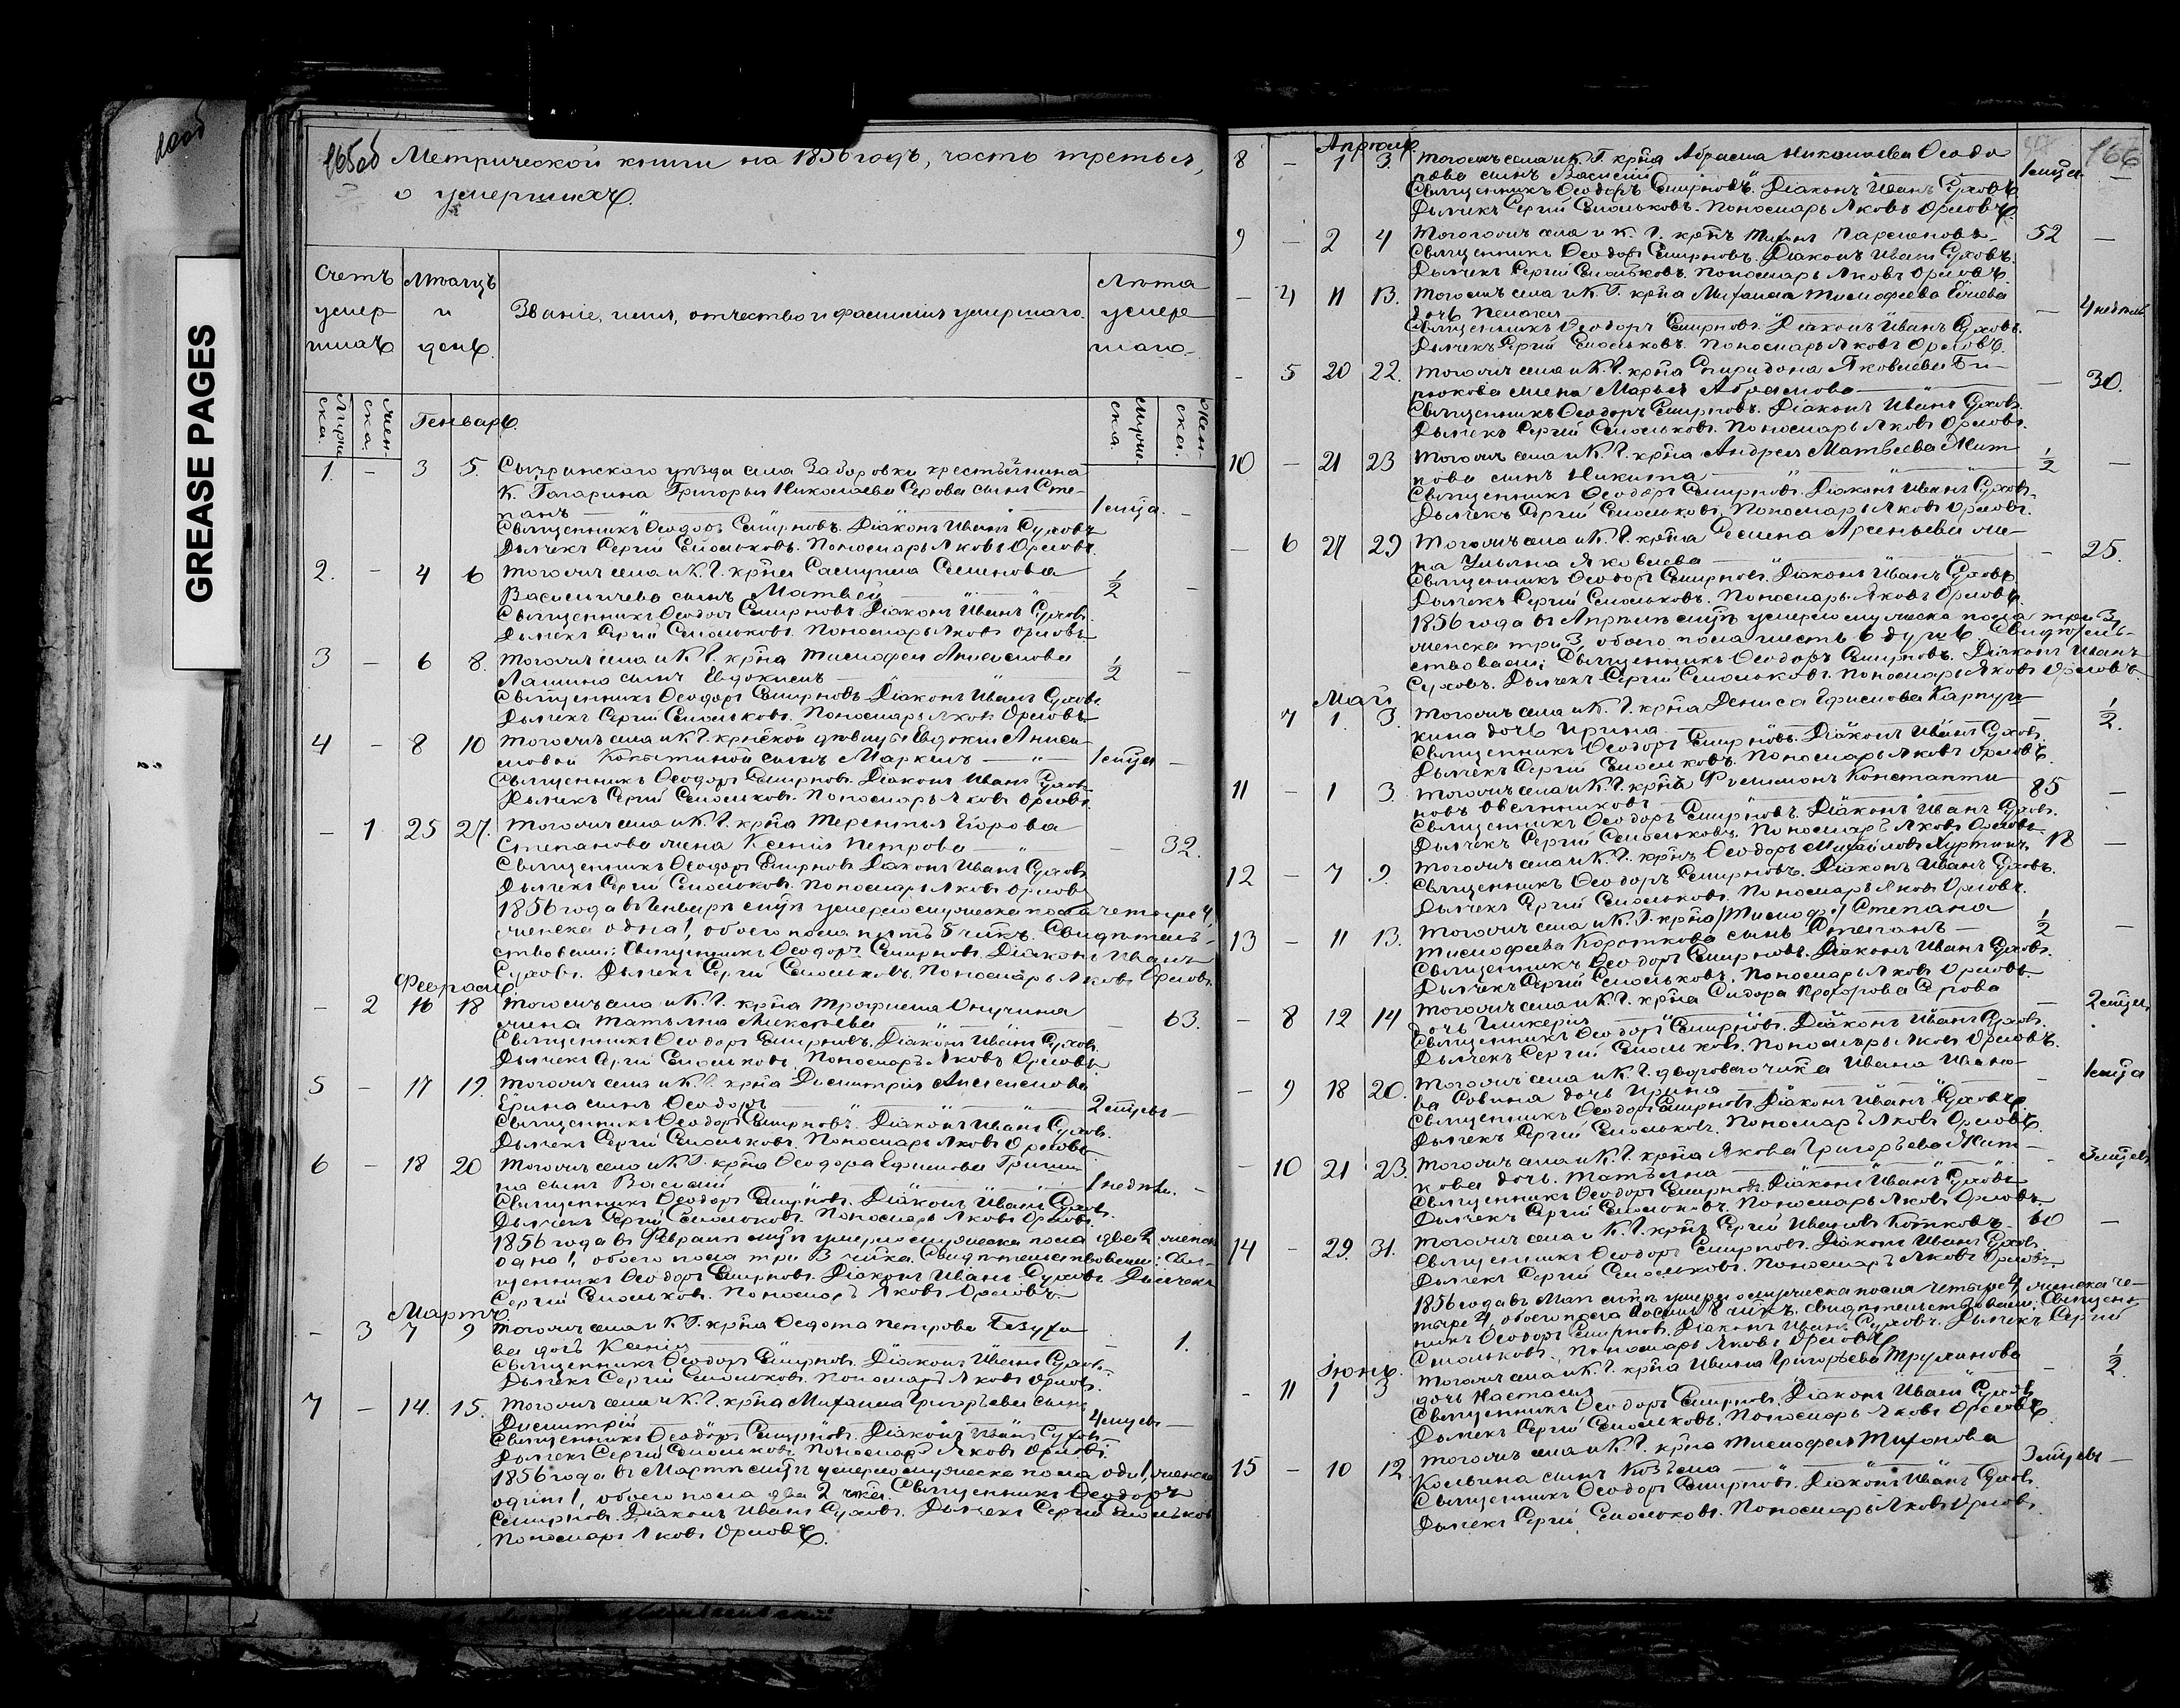 GREASE PAGES
165об Метрической книги на 1856 годъ, часть третья,
о умершихъ.
Счетъ умер шихъ
Мѣсяцъ и день.
Званіе, имя, отчество и фамилія умершаго.
Лѣта умер шаго.
Мужеска.
Женска.
Генварь.
Мужеска.
Женска.
1. - 3 5. Сызранского уѣзда села Заборовки крестьянина
К. Гагарина Григорья Николаева Серова сынъ Сте-
панъ 1 мца. -
Священникъ Ѳеодоръ Смирновъ. Діаконъ Иванъ Суховъ
Дьячекъ Сергій Смольковъ. Пономарь Яковъ Орловъ.
2. - 4 6 Тогожъ села и К. Г. крѣна Семенова
Васильичева сынъ Матвей 1/2 -
Священникъ Ѳеодоръ Смирновъ. Діаконъ Иванъ Суховъ.
Дьячекъ Сергій Смольковъ. Пономарь Яковъ Орловъ
3 - 6 8. Тогожъ села и К. Г. крѣна Тимофея Анисимова
Лашина сынъ Евдокимъ 1/2 -
Священникъ Ѳеодоръ Смирновъ. Діаконъ Иванъ Суховъ.
Дьячекъ Сергій Смольковъ. Пономарь Яковъ Орловъ
4 - 8 10 Тогожъ села и К. Г. крѣнской дѣвицы Евдокии Аниси-
мовой сынъ Маркелъ 1 мца -
Священникъ Ѳеодоръ Смирновъ. Діаконъ Иванъ Суховъ
Дьячекъ Сергій Смольковъ. Пономарь Яковъ Орловъ.
- 1 25 27. Тогожъ села и К. Г. крѣна Терентья Егорова
Степанова жена Ксенія Петрова - 32.
Священникъ Ѳеодоръ Смирновъ. Діаконъ Иванъ Суховъ
Дьячекъ Сергій Смольковъ. Пономарь Яковъ Орловъ
1856 года въ Генваря мцѣ умерло мужеска пола четыре 4,
женска одна 1, обоего пола пять 5 чкъ. Свидѣтель-
ствовали: Священникъ Ѳеодоръ Смирновъ. Діаконъ Иванъ
Суховъ. Дьячекъ Сергій Смольковъ. Пономарь Яковъ Орловъ.
Февраль.
- 2 16 18 Тогожъ села и К. Г. крѣна Трофима Онучина
жена Татьяна Алексѣева - 63.
Священникъ Ѳеодоръ Смирновъ. Діаконъ Иванъ Суховъ.
Дьячекъ Сергій Смольковъ. Пономарь Яковъ Орловъ
5 - 17 19. Тогожъ села и К. Г. крѣна Димитрія Анисимова
Ерина сынъ Ѳеодоръ 2 мцевъ -
Священникъ Ѳеодоръ Смирновъ. Діаконъ Иванъ Суховъ.
Дьячекъ Сергій Смольковъ. Пономарь Яковъ Орловъ.
6 - 18 20 Тогожъ села и К. Г. крѣна Ѳеодора Ефимова Гриши-
на сынъ Василій 1 недѣли. -
Священникъ Ѳеодоръ Смирновъ. Діаконъ Иванъ Суховъ.
Дьячекъ Сергій Смольковъ. Пономарь Яковъ Орловъ.
1856 года въ Февралѣ мцѣ умерло мужеска пола два 2 женска
одна 1, обоего пола три 3 чика. Свидѣтельствовали: Свя-
щенникъ Ѳеодоръ Смирновъ. Діаконъ Иванъ Суховъ. Дьячекъ
Сергій Смольковъ. Пономарь Яковъ Орловъ.
Мартъ.
- 3 7 9 Тогожъ села и К. Г. крѣна Ѳедота Петрова Безухо
ва дочь Ксенія - 1.
Священникъ Ѳеодоръ Смирновъ. Діаконъ Иванъ Суховъ.
Дьячекъ Сергій Смольковъ. Пономарь Яковъ Орловъ.
7 - 14. 15. Тогожъ села и К. Г. крѣна Михаила Григорьева сынъ
Димитрій 4 мцевъ -
Священникъ Ѳеодоръ Смирновъ. Діаконъ Иванъ Суховъ.
Дьячекъ Сергій Смольковъ. Пономарь Яковъ Орловъ.
1856 года въ Мартѣ мцѣ умерло мужеска пола оди 1, женска
одинъ 1, обоего пола два 2 чка. Священникъ Ѳеодоръ
Смирновъ. Діаконъ Иванъ Суховъ. Дьячекъ Сергій Смольков
Пономарь Яковъ Орловъ.
166
Апрѣль.
8 - 1 3. Тогожъ села и К. Г. крѣна Абрама Николаева Ѳедо
рова сынъ Василій 1 мца. -
Священникъ Ѳеодоръ Смирновъ. Діаконъ Иванъ Суховъ
Дьячекъ Сергій Смольковъ. Пономарь Яковъ Орловъ.
9 - 2 4 Тогожъ села и К. Г. крѣнъ Парменовъ 52 -
Священникъ Ѳеодоръ Смирновъ. Діаконъ Иванъ Суховъ.
Дьячекъ Сергій Смольковъ. Пономарь Яковъ Орловъ
- 4 11 13. Тогожъ села и К. Г. крѣна Михаила Тимофеева
дочь - 4 недѣль
Священникъ Ѳеодоръ Смирновъ. Діаконъ Иванъ Суховъ.
Дьячекъ Сергій Смольковъ. Пономарь Яковъ Орловъ.
- 5 20 22. Тогожъ села и К. Г. крѣна Спиридона Яковлева Би-
рюкова жена Марья Абрамова - 30.
Священникъ Ѳеодоръ Смирновъ. Діаконъ Иванъ Суховъ.
Дьячекъ Сергій Смольковъ. Пономарь Яковъ Орловъ.
10 - 21 23 Тогожъ села и К. Г. крѣна Андрея Матвеева Жит
кова сынъ Никита 1/2 -
Священникъ Ѳеодоръ Смирновъ. Діаконъ Иванъ Суховъ.
Дьячекъ Сергій Смольковъ. Пономарь Яковъ Орловъ.
- 6 27 29 Тогожъ села и К. Г. крѣна Семена Арсеньева же-
на Ульяна Яковлева - 25.
Священникъ Ѳеодоръ Смирновъ. Діаконъ Иванъ Суховъ
Дьячекъ Сергій Смольковъ. Пономарь Яковъ Орловъ.
1856 года въ Апрѣлѣ мцѣ умерло мужеска пола три 3,
женска три 3, обоего пола шесть 6 душъ. Свидѣтель-
ствовали: Священникъ Ѳеодоръ Смирновъ. Діаконъ Иванъ
Суховъ. Дьячекъ Сергій Смольковъ. Пономарь Яковъ Орловъ.
Май
7 1. 3. Тогожъ села и К. Г. крѣна Дениса Ефимова Карпу-
хина дочь Ирина - 1/2.
Священникъ Ѳеодоръ Смирновъ. Діаконъ Иванъ Суховъ.
Дьячекъ Сергій Смольковъ. Пономарь Яковъ Орловъ.
11 - 1 3. Тогожъ села и К. Г. крѣнъ Филимонъ Константи
новъ Овсянниковъ 85 -
Священникъ Ѳеодоръ Смирновъ. Діаконъ Иванъ Суховъ.
Дьячекъ Сергій Смольковъ. Пономарь Яковъ Орловъ.
12 - 7 9. Тогожъ села и К. Г. крѣнъ Ѳеодоръ Михайловъ 18 -
Священникъ Ѳеодоръ Смирновъ. Діаконъ Иванъ Суховъ.
Дьячекъ Сергій Смольковъ. Пономарь Яковъ Орловъ.
13 - 11 13. Тогожъ села и К. Г. крѣна /Тимоф./ Степана
Тимофеева Короткова сынъ Степанъ 1/2 -
Священникъ Ѳеодоръ Смирновъ. Діаконъ Иванъ Суховъ.
Дьячекъ Сергій Смольковъ. Пономарь Яковъ Орловъ.
- 8 12 14 Тогожъ села и К. Г. крѣна Сидора Прохорова Серова
дочь Гликерія - 2 мцевъ
Священникъ Ѳеодоръ Смирновъ. Діаконъ Иванъ Суховъ.
Дьячекъ Сергій Смольковъ. Пономарь Яковъ Орловъ.
- 9 18 20. Тогожъ села и К. Г. двороваго чика Ивана Ивано-
ва Совина дочь Ирина - 1 мца
Священникъ Ѳеодоръ Смирновъ. Діаконъ Иванъ Суховъ.
Дьячекъ Сергій Смольковъ. Пономарь Яковъ Орловъ.
- 10 21 23. Тогожъ села и К. Г. крѣна Якова Григорьева Жит-
кова дочь Татьяна - 3 мцевъ
Священникъ Ѳеодоръ Смирновъ. Діаконъ Иванъ Суховъ
Дьячекъ Сергій Смольковъ. Пономарь Яковъ Орловъ.
14 - 29. 31. Тогожъ села и К. Г. крѣнъ Сергій Ивановъ Котковъ 60 -
Священникъ Ѳеодоръ Смирновъ. Діаконъ Иванъ Суховъ
Дьячекъ Сергій Смольковъ. Пономарь Яковъ Орловъ.
1856 года въ Маѣ мцѣ умерло мужеска пола четыре 4, женска че-
тыре 4, обоего пола восемь 8 чикъ. Свидѣтельствовали: Священ-
никъ Ѳеодоръ Смирновъ. Діаконъ Иванъ Суховъ. Дьячекъ Сергій
Смольковъ. Пономарь Яковъ Орловъ.
Іюнь.
- 11 1 3 Тогожъ села и К. Г. крѣна Ивана Григорьева Труханова
дочь Настасья - 1/2.
Священникъ Ѳеодоръ Смирновъ. Діаконъ Иванъ Суховъ
Дьячекъ Сергій Смольковъ. Пономарь Яковъ Орловъ.
15 - 10 12. Тогожъ села и К. Г. крѣна Тимофея Тихонова
сынъ Козьма 3 мцевъ -
Священникъ Ѳеодоръ Смирновъ. Діаконъ Иванъ Суховъ.
Дьячекъ Сергій Смольковъ. Пономарь Яковъ Орловъ.